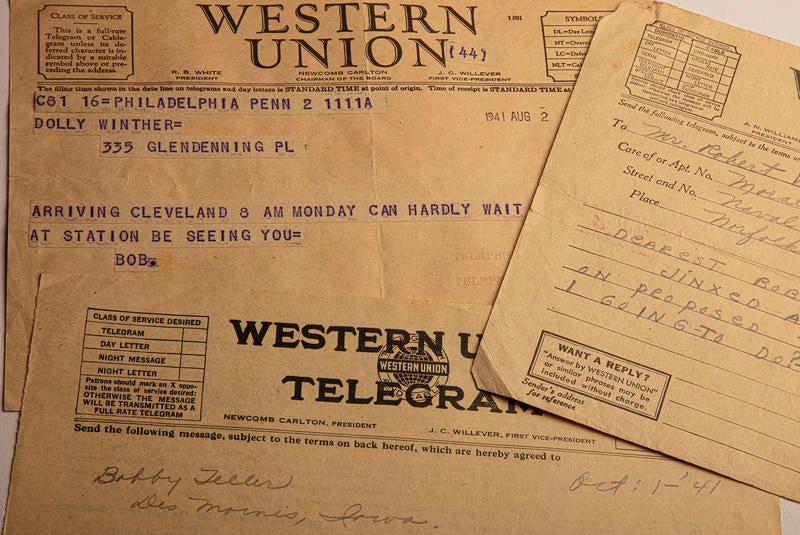 CLASS OF SERVICE
This is a full-rate
Telegram or Cable-
gram unless its de-
ferred character is in-
dicated by a suitable
symbol above or pre-
ceding the address.
WESTERN
UNION
(44)
1201
SYMBOLS
DL=Day Let
NT=Overn
LC=Defer
NLT=Cab
R. B. WHITE
PRESIDENT
NEWCOMB CARLTON
CHAIRMAN OF THE BOARD
J. C. WILLEVER
FIRST VICE-PRESIDENT
The filing time shown in the date line on telegrams and day letters is STANDARD TIME at point of origin. Time of receipt is STANDARD TIME
C81 16=PHILADELPHIA PENN 2 1111A
1941 AUG 2
DOLLY WINTHER=
335 GLENDENNING PL
ARRIVING CLEVELAND 8 AM MONDAY CAN HARDLY WAIT
AT STATION BE SEEING YOU=
BOB.
TELEPH
TELEP
DOMESTIC
CABLE
TELEGRAM
DAY
LETTER
SERIAL
NIGHT
LETTER
ORDINARY
URGENT
RATE
DEFERRED
NIGHT
LETTER
A. N. WILLIAM
PRESIDENT
Send the following telegram, subject to the terms on
To Mr. Robert
Care of or Apt. No.
Street and No. Naval
Place Norfolk
DEAREST BOB
JINXED A
ON PROPOSED
I GOING TO DO?
WANT A REPLY?
"Answer by WESTERN UNION"
or similar phrases may be
included without charge.
Sender's address
for reference
CLASS OF SERVICE DESIRED
TELEGRAM
DAY LETTER
NIGHT MESSAGE
NIGHT LETTER
Patrons should mark an X oppo-
site the class of service desired:
OTHERWISE THE MESSAGE
WILL BE TRANSMITTED AS A
FULL RATE TELEGRAM
WESTERN U
WESTERN UNION
TELEGRAM
NEWCOMB CARLTON, PRESIDENT
J. C. WILLEVER, FIRST VICE-PRESIDENT
Send the following message, subject to the terms on back hereof, which are hereby agreed to
Bobby Teller
Oct: 1-'41
Des Moines, Iowa.